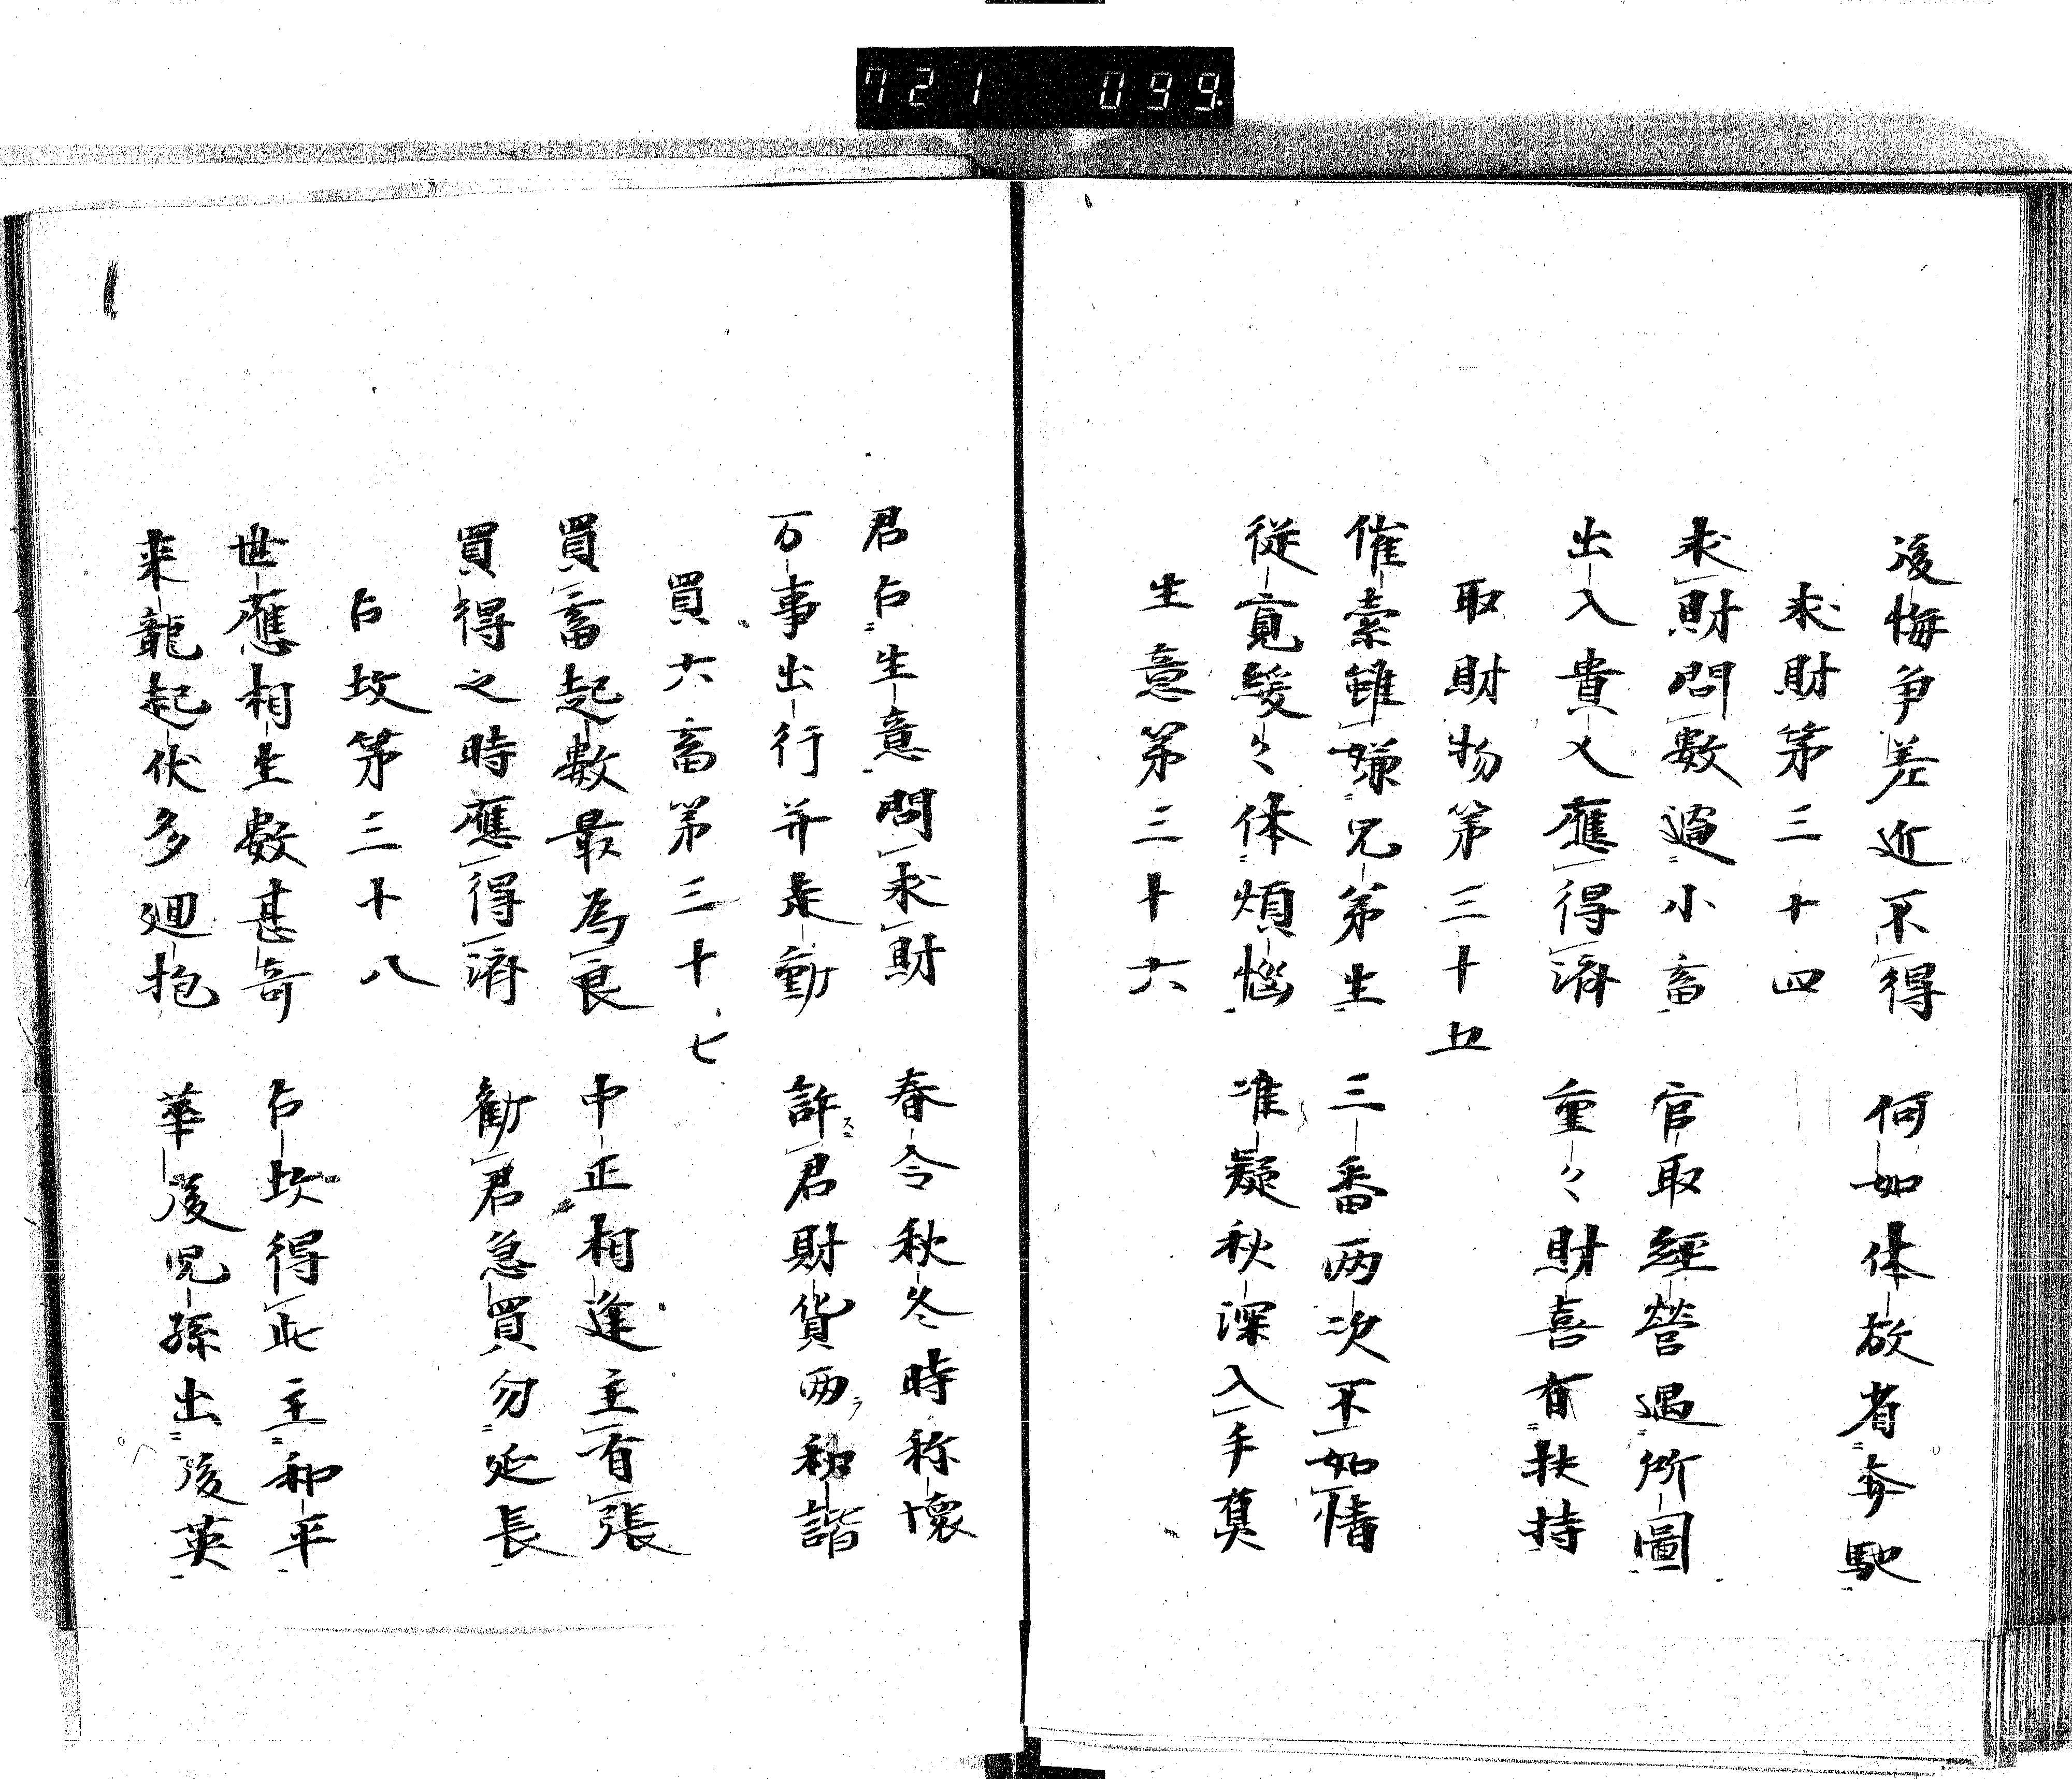 721 099.
後悔争差近不得 何如体放省奔馳
求財第三十四
求財問数過小畜 官取經營過所圖
出入貴人應得濟 重々財喜有扶持
取財物第三十五
催索雖嫌兄弟生 三番两次不如情
従寛緩々体煩惱 准疑秋深入手莫
生意第三十六
君占生意問求財 春令秋冬時称懷
万事出行并走動 許君財貨两和諧
買六畜第三十七
買畜起數最為良 中正相逢主有張
買得之時應得濟 勧君急買勿延長
占坟第三十八
世應相生數甚奇 占坟得此主和平
来龍起伏多廻抱 華後児孫出後英